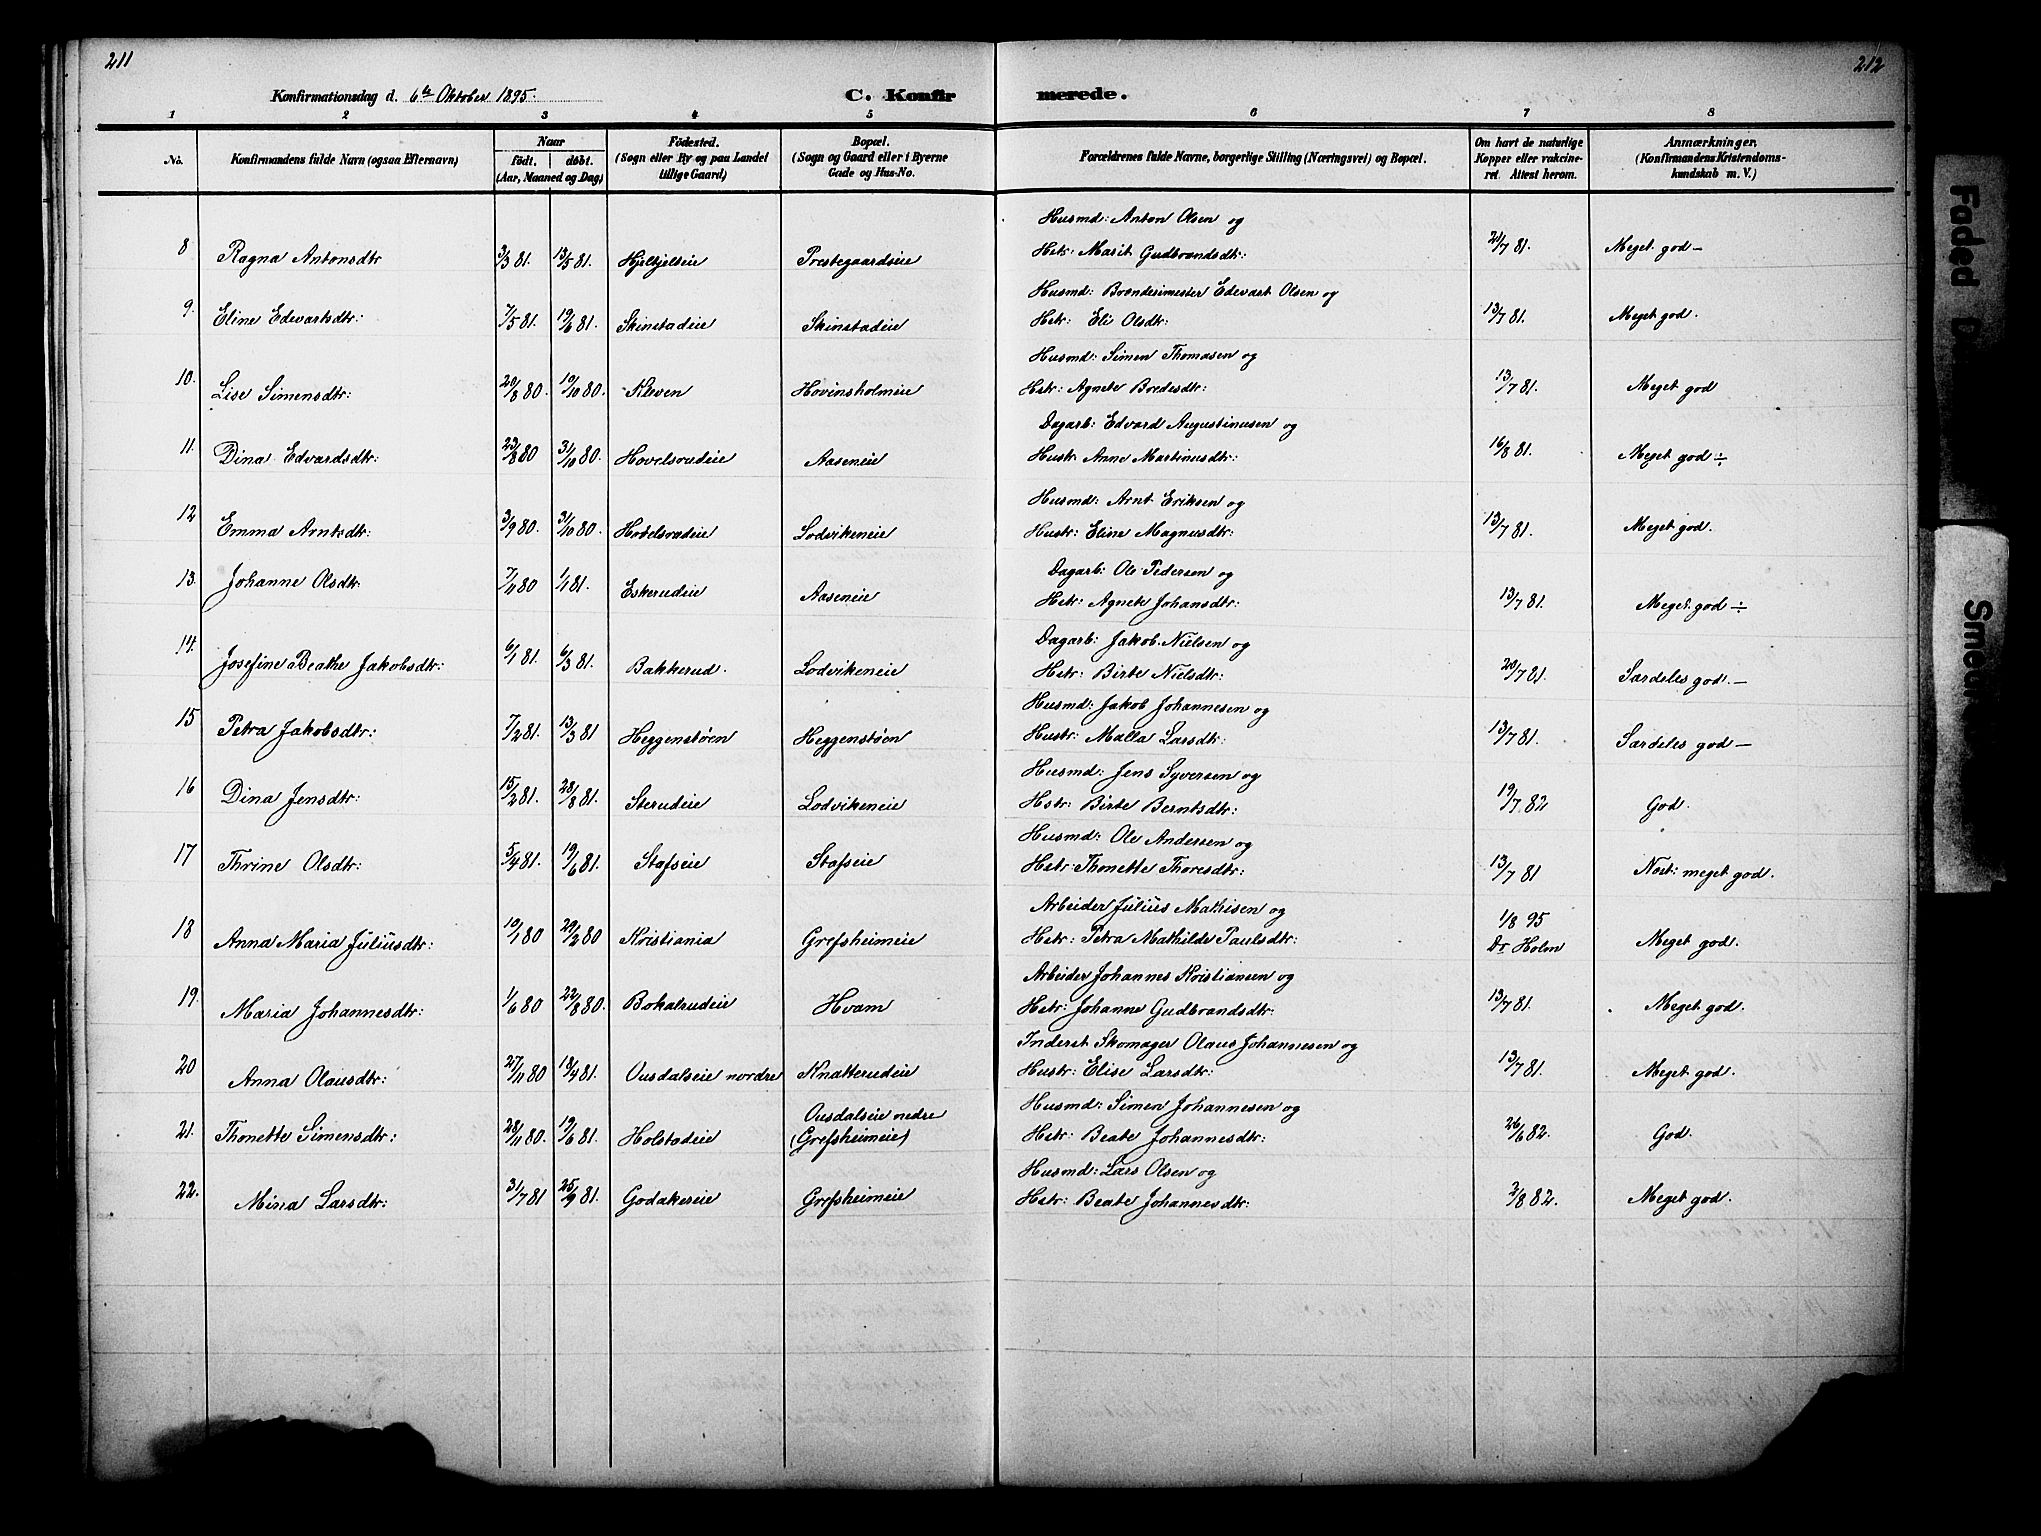 211
212
Konfirmationsdag d. 6te Oktober 1895.
C. Konfirmerede.
1 2 3 4 5 6 7 8
No.
Konfirmandens fulde Navn (ogsaa Efternavn)
Naar
født. døbt.
(Aar, Maaned og Dag)
Fødested.
(Sogn eller By og paa Landet
tillige Gaard)
Bopæl.
(Sogn og Gaard eller i Byerne
Gade og Hus-No.
Forældrenes fulde Navne, borgerlige Stilling (Næringsvei) og Bopæl.
Om havt de naturlige
Kopper eller vakcine-
ret. Attest herom.
Anmærkninger.
(Konfirmandens Kristendoms-
kundskab m. V.)
Husmd: Anton Olsen og
8 Ragna Antonsdtr 3/3 81. 13/5 81. Hjelkjelseie Prestegaardseie Hstr: Marit Gudbrandsdtr: 21/7 81. Meget god –
Husmd: Brøndesmester Edevart Olsen og
9. Eline Edevartsdtr: 7/5 81. 19/6 81. Skinstadeie Skinstadeie Hstr: Eli Olsdtr: 13/7 81. Meget god.
Husmd: Simen Thomasen og
10. Lise Simensdtr: 20/8 80 19/10 80. Kleven Hovinsholmeie Hstr: Agnete Bredesdtr: 13/7 81. Meget god
Dagarb: Edvard Augustinusen og
11. Dina Edvardsdtr: 23/8 80 31/10 80. Hovelsrudeie Aaseneie Hustr: Anne Martinusdtr: 16/8 81. Meget god ÷
Husmd: Arnt Eriksen og
12 Emma Arntsdtr: 3/9 80. 31/10 80. Hovelsrudeie Lodvikeneie Hustr: Eline Magnusdtr: 13/7 81. Meget god.
Dagarb: Ole Pedersen og
13. Johanne Olsdtr: 7/11 80 1/1 81. Eskerudeie Aaseneie Hstr: Agnete Johansdtr: 13/7 81. Meget god ÷
Dagarb: Jakob Nielsen og
14. Josefine Beathe Jakobsdtr: 6/1 81. 6/3 81. Bakkerud. Lodvikeneie Hstr: Birte Nielsdtr: 20/7 81. Særdeles god. –
Husmd: Jakob Johannesen og
15 Petra Jakobsdtr: 7/2 81. 13/3 81 Heggenstøen Heggenstøen Hustr: Malla Larsdtr: 13/7 81. Særdeles god –
Husmd: Jens Syversen og
16 Dina Jensdtr: 15/2 81. 28/8 81. Sterudeie Lodvikeneie Hstr: Birte Berntsdtr: 19/7. 82 God.
Husmd: Ole Andersen og
17 Thrine Olsdtr: 5/4 81. 19/6 81. Stafseie Stafseie Hstr: Thonette Thoresdtr: 13/7 81 Næst: meget god.
Arbeider Julius Mathisen og
18 Anna Maria Juliusdtr: 10/1 80 29/2 80 Kristiania Grefsheimeie Hstr: Petra Mathilde Paulsdtr: 1/8 95 Meget god.
Dr Holm
Arbeider Johannes Kristiansen og
19. Maria Johannesdtr: 1/6 80 22/8 80. Bokalrudeie Hvam Hstr: Johanne Gudbrandsdtr: 13/7 81. Meget god.
Inderst Skomager Olaus Johannesen og
20 Anna Olausdtr: 27/11 80 18/4 81. Ousdalseie nordre Knatterudeie Hustr: Elise Larsdtr: 13/7 81. Meget god.
Husmd: Simen Johannesen og
Ousdalseie nedre
21. Thonette Simensdtr: 28/11 80. 19/6 81. Holstadeie (Grefsheimeie) Hstr: Beate Johannesdtr: 26/6 82. God.
Husmd: Lars Olsen og
22. Mina Larsdtr: 31/7 81 25/9 81. Godakereie Grefsheimeie Hstr: Beate Johannesdtr: 2/8 82. Meget god.
Faded